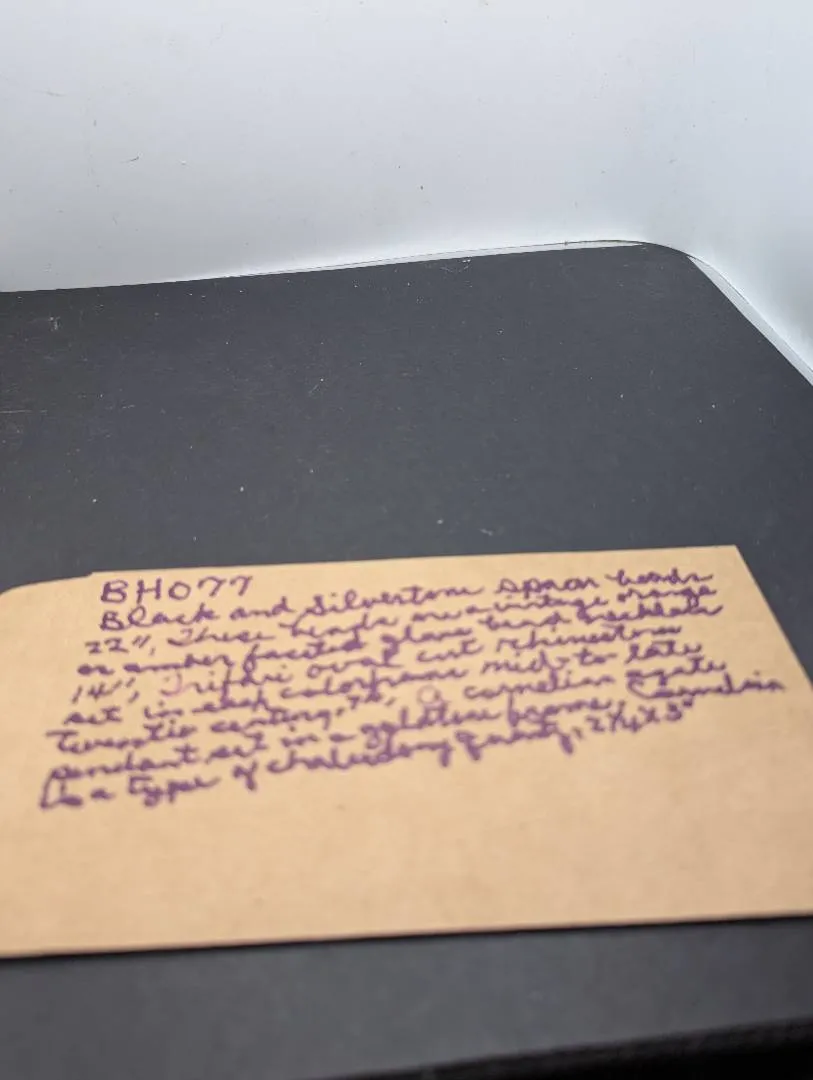 BH077
Black and Silvertone spacer beads
22", These beads are a vintage orange
or amber faceted glass bead necklace
14", Trifari oval cut rhinestone
set in each colorframe mid-to late
twentie century, 7", A carnelian agate
pendant set in a goldtone frame, Carnelain
is a type of chalcedony quartz, 2 1/4 x 3"